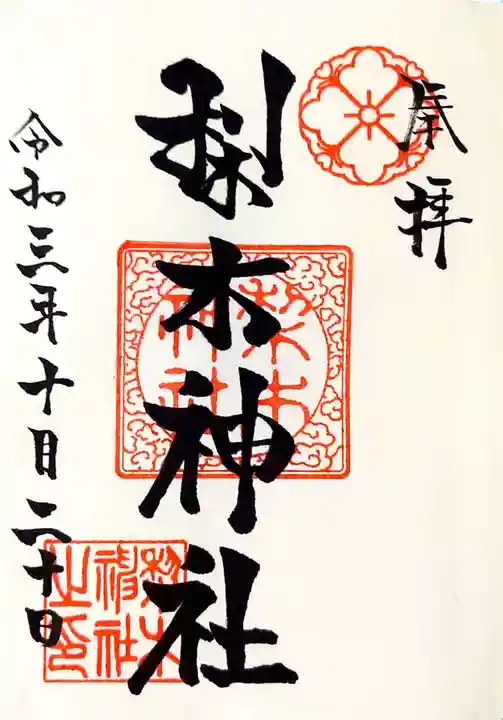 奉拝
梨木神社
令和三年十月二十日
梨木神社
梨木神社之印